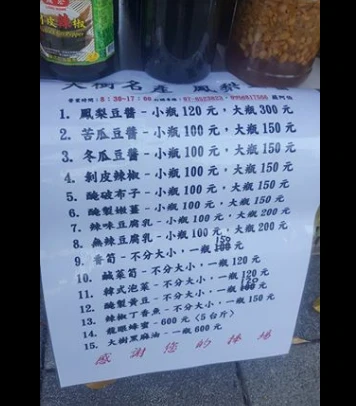 剝皮辣椒
大樹名產 鳳梨
營業時間:8:30-17:00
1. 鳳梨豆醬-小瓶120元,大瓶300元
2. 苦瓜豆醬-小瓶100元,大瓶150元
3. 冬瓜豆醬-小瓶100元,大瓶150元
4. 剝皮辣椒-小瓶100元,大瓶150元
5. 醃破布子-小瓶100元,大瓶150元
6. 醃製嫩薑-小瓶100元,大瓶150元
7. 辣味豆腐乳-小瓶100元,大瓶200元
8. 無辣豆腐乳-小瓶100元,大瓶200元
9. 脊筍-不分大小,一瓶150元
10. 鹹菜筍-不分大小,一瓶120元
11. 韓式泡菜-不分大小,一瓶120元
12. 醃製黃豆-不分大小,一瓶150元
13. 辣椒丁香魚-不分大小,一瓶150元
14. 龍眼蜂蜜-600元(5台斤)
15. 大樹黑麻油-一瓶600元
感謝您的捧場